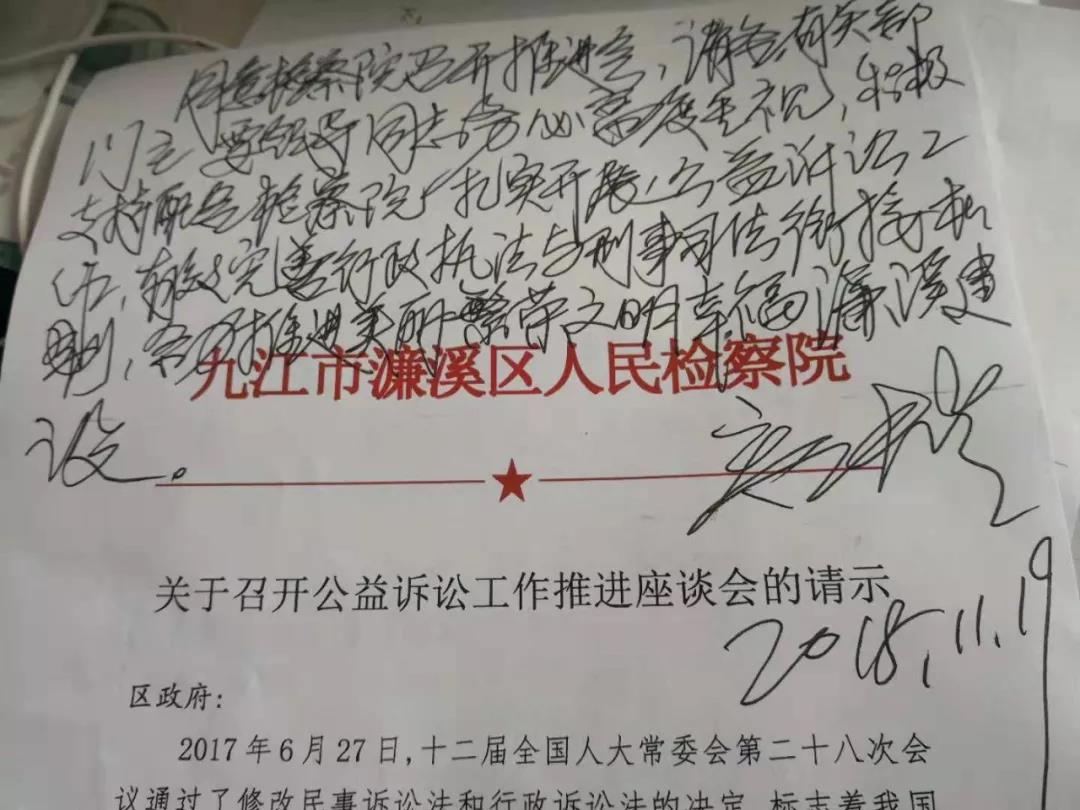 同意检察院召开推进会，请各有关部
门主要领导同志务必高度重视，积极
支持配合检察院扎实开展公益诉讼工
作，有效完善行政执法与刑事司法衔接机
制，合力推进美丽繁荣文明幸福濂溪建
设。
九江市濂溪区人民检察院
关于召开公益诉讼工作推进座谈会的请示
2018.11.19
区政府：
2017年6月27日，十二届全国人大常委会第二十八次会
议通过了修改民事诉讼法和行政诉讼法的决定，标志着我国